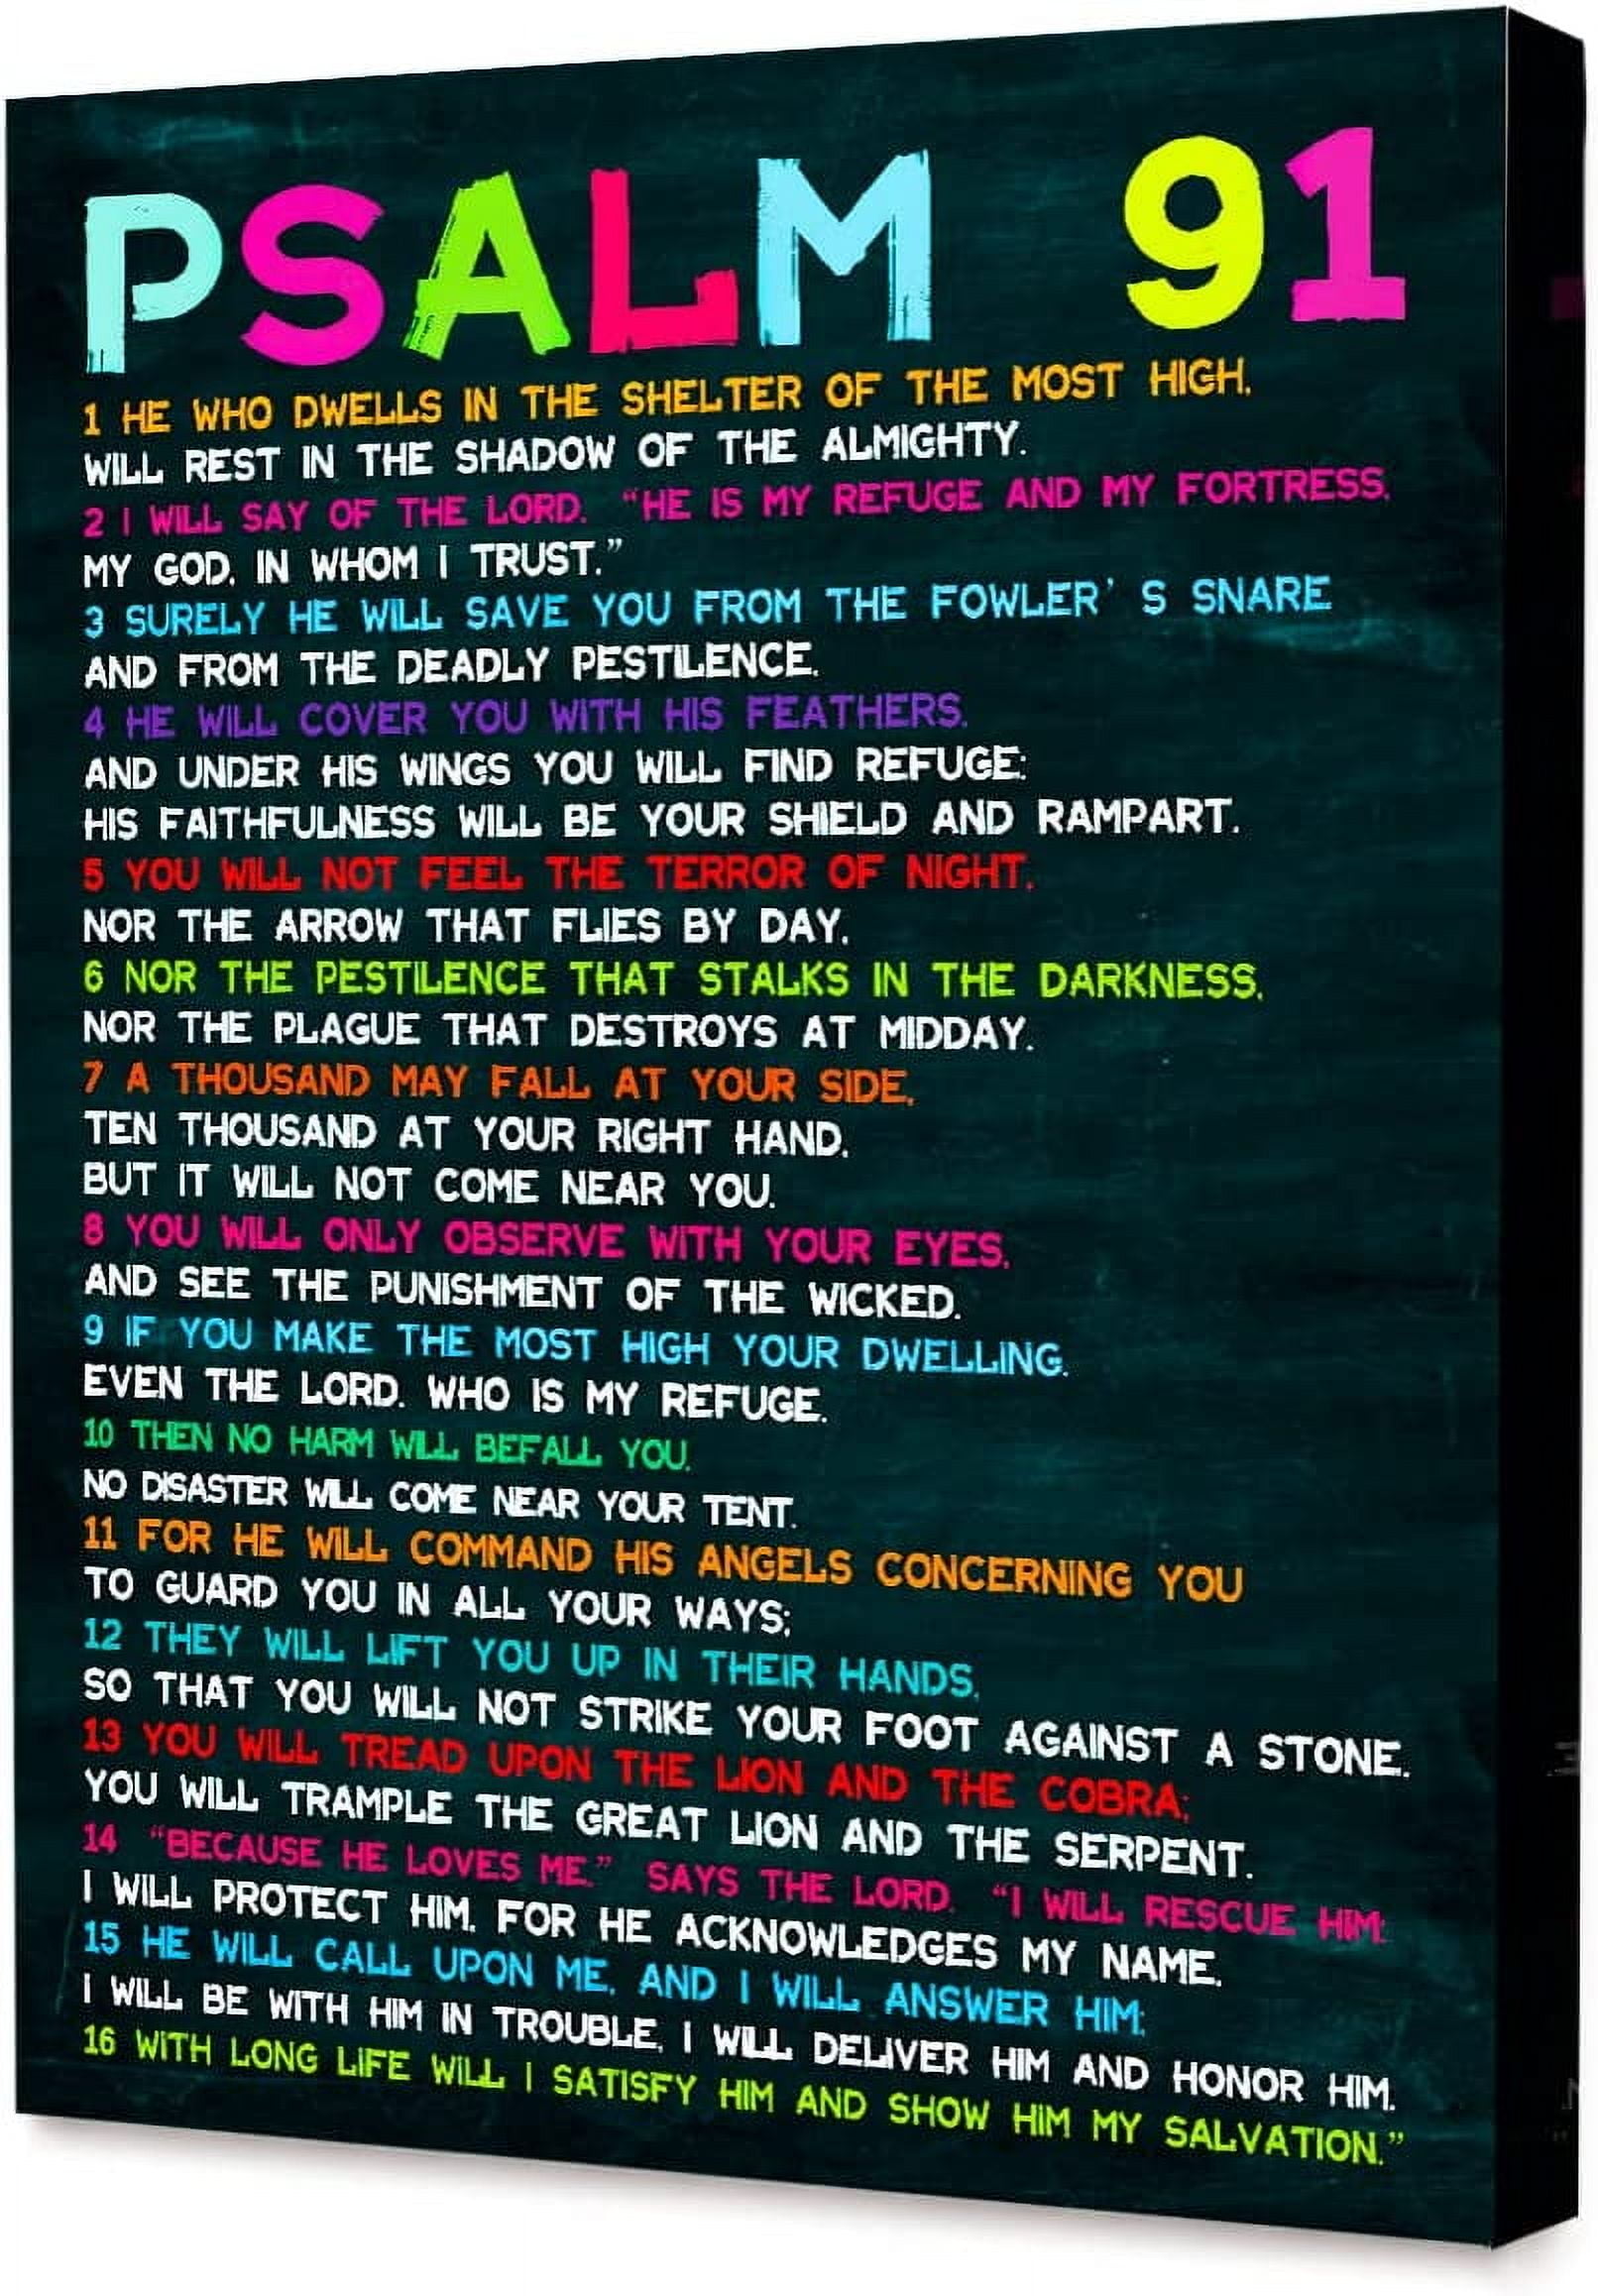 PSALM 91
1 HE WHO DWELLS IN THE SHELTER OF THE MOST HIGH.
WILL REST IN THE SHADOW OF THE ALMIGHTY.
2 I WILL SAY OF THE LORD. “HE IS MY REFUGE AND MY FORTRESS.
MY GOD. IN WHOM I TRUST.”
3 SURELY HE WILL SAVE YOU FROM THE FOWLER’ S SNARE
AND FROM THE DEADLY PESTILENCE.
4 HE WILL COVER YOU WITH HIS FEATHERS.
AND UNDER HIS WINGS YOU WILL FIND REFUGE:
HIS FAITHFULNESS WILL BE YOUR SHIELD AND RAMPART.
5 YOU WILL NOT FEEL THE TERROR OF NIGHT.
NOR THE ARROW THAT FLIES BY DAY.
6 NOR THE PESTILENCE THAT STALKS IN THE DARKNESS.
NOR THE PLAGUE THAT DESTROYS AT MIDDAY.
7 A THOUSAND MAY FALL AT YOUR SIDE.
TEN THOUSAND AT YOUR RIGHT HAND.
BUT IT WILL NOT COME NEAR YOU.
8 YOU WILL ONLY OBSERVE WITH YOUR EYES.
AND SEE THE PUNISHMENT OF THE WICKED.
9 IF YOU MAKE THE MOST HIGH YOUR DWELLING.
EVEN THE LORD. WHO IS MY REFUGE.
10 THEN NO HARM WILL BEFALL YOU.
NO DISASTER WILL COME NEAR YOUR TENT.
11 FOR HE WILL COMMAND HIS ANGELS CONCERNING YOU
TO GUARD YOU IN ALL YOUR WAYS;
12 THEY WILL LIFT YOU UP IN THEIR HANDS.
SO THAT YOU WILL NOT STRIKE YOUR FOOT AGAINST A STONE.
13 YOU WILL TREAD UPON THE LION AND THE COBRA;
YOU WILL TRAMPLE THE GREAT LION AND THE SERPENT.
14 “BECAUSE HE LOVES ME.” SAYS THE LORD. “I WILL RESCUE HIM;
I WILL PROTECT HIM. FOR HE ACKNOWLEDGES MY NAME.
15 HE WILL CALL UPON ME. AND I WILL ANSWER HIM;
I WILL BE WITH HIM IN TROUBLE. I WILL DELIVER HIM AND HONOR HIM.
16 WITH LONG LIFE WILL I SATISFY HIM AND SHOW HIM MY SALVATION.”